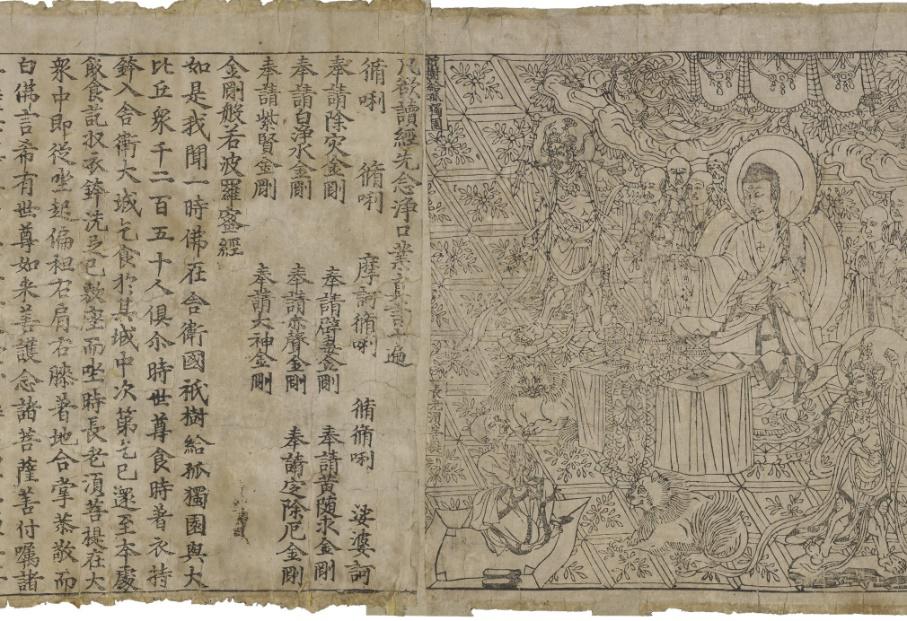 祇樹給孤獨園
凡欲讀經先念淨口業真言一遍
脩唎 脩唎 摩訶脩唎 脩脩唎 娑婆訶
奉請除灾金剛 奉請辟毒金剛 奉請黃随求金剛
奉請白淨水金剛 奉請赤聲金剛 奉請定除厄金剛
奉請紫賢金剛 奉請大神金剛
金剛般若波羅蜜經
如是我聞一時佛在舍衛國祇樹給孤獨園與大
比丘衆千二百五十人俱尒時世尊食時著衣持
鉢入舍衛大城乞食於其城中次第乞已還至本處
飯食訖収衣鉢洗足已敷座而坐時長老湏菩提在大
衆中即從坐起偏袒右肩右膝著地合掌恭敬而
白佛言希有世尊如来善護念諸菩薩善付囑諸